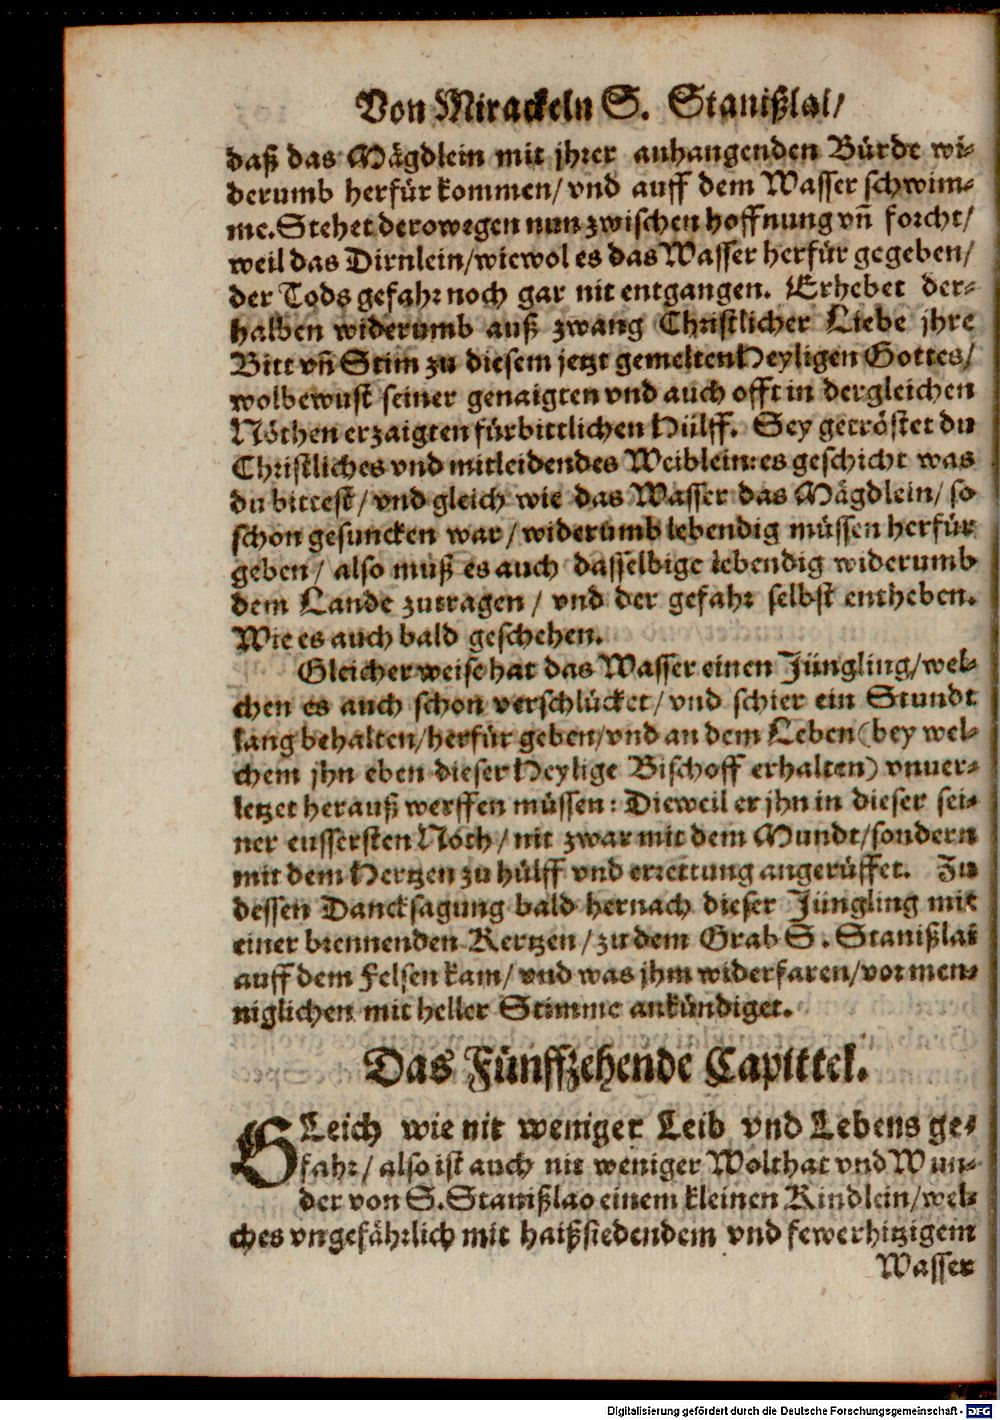 Von Mirackeln S. Stanißlai/
daß das Mägdlein mit jhrer anhangenden Bürde wi-
derumb herfür kommen/ vnd auff dem Wasser schwim-
me. Stehet derowegen nun zwischen hoffnung vñ forcht/
weil das Dirnlein/ wiewol es das Wasser herfür gegeben/
der Tods gefahr noch gar nit entgangen. Erhebet der-
halben widerumb auß zwang Christlicher Liebe jhre
Bitt vñ Stim zu diesem jetzt gemelten Heyligen Gottes/
wolbewust seiner genaigten vnd auch offt in dergleichen
Nöthen erzaigten fürbittlichen Hülff. Sey getröstet du
Christliches vnd mitleidendes Weiblein: es geschicht was
du bittest/ vnd gleich wie das Wasser das Mägdlein/ so
schon gesuncken war/ widerumb lebendig müssen herfür
geben/ also muß es auch dasselbige lebendig widerumb
dem Lande zutragen/ vnd der gefahr selbst entheben.
Wie es auch bald geschehen.
Gleicher weise hat das Wasser einen Jüngling/ wel-
chen es auch schon verschlücket/ vnd schier ein Stundt
lang behalten/ herfür geben/ vnd an dem Leben (bey wel-
chem jhn eben dieser Heylige Bischoff erhalten) vnuer-
letzet herauß werffen müssen: Dieweil er jhn in dieser sei-
ner eussersten Noth/ nit zwar mit dem Mundt/ sondern
mit dem Hertzen zu hülff vnd errettung angerüffet. Zu
dessen Dancksagung bald hernach dieser Jüngling mit
einer brennenden Kertzen/ zu dem Grab S. Stanißlai
auff dem Felsen kam/ vnd was jhm widerfaren/ vor men-
niglichen mit heller Stimme ankündiget.
Das Fünffzehende Capittel.
GLeich wie nit weniger Leib vnd Lebens ge-
fahr/ also ist auch nit weniger Wolthat vnd Wun-
der von S. Stanißlao einem kleinen Kindlein/ wel-
ches vngefährlich mit haißsiedendem vnd fewerhitzigem
Wasser
Digitalisierung gefördert durch die Deutsche Forschungsgemeinschaft - DFG